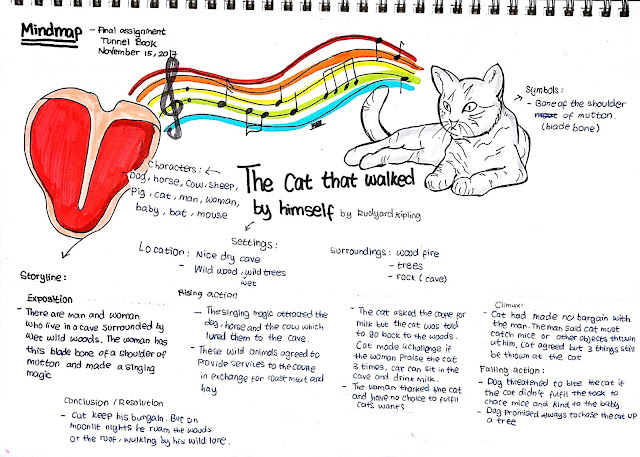 Mindmap
- Final assignment
Tunnel Book
November 15, 2017
Symbols:
- Bone of the shoulder
of mutton.
(blade bone)
Characters:
Dog, horse, cow, sheep,
pig, cat, man, woman,
baby, bat, mouse
The Cat that walked
by himself by Rudyard Kipling
Settings:
Location: Nice dry cave
- Wild wood, wild trees
wet
Surroundings: wood fire
- trees
- rock (cave)
Storyline:
Exposition
- There are man and woman
who live in a cave surrounded by
wet wild woods. The woman has
this blade bone of a shoulder of
mutton and made a singing
magic
Rising action
- The singing magic attracted the
dog, horse and the cow which
lured them to the cave.
- These wild animals agreed to
provide services to the couple
in exchange for roast meat and
hay
- The cat asked the couple for
milk but the cat was told
to go back to the woods.
Cat made a challenge if
the woman praise the cat
3 times, cat can sit in the
cave and drink milk.
- The woman thanked the cat
and have no choice to fulfil
cats wants.
Climax:
- Cat had made no bargain with
the man. The man said cat must
catch mice or other objects thrown
at him, cat agreed but 3 things still
be thrown at the cat
Falling action:
- Dog threatened to bite the cat if
the cat didn't fulfil the task to
chase mice and kind to the baby.
- Dog promised always to chase the cat up
a tree
Conclusion / Resolution
- Cat keep his bargain. But on
moonlit nights he roam the woods
or the roof, walking by his wild lone.